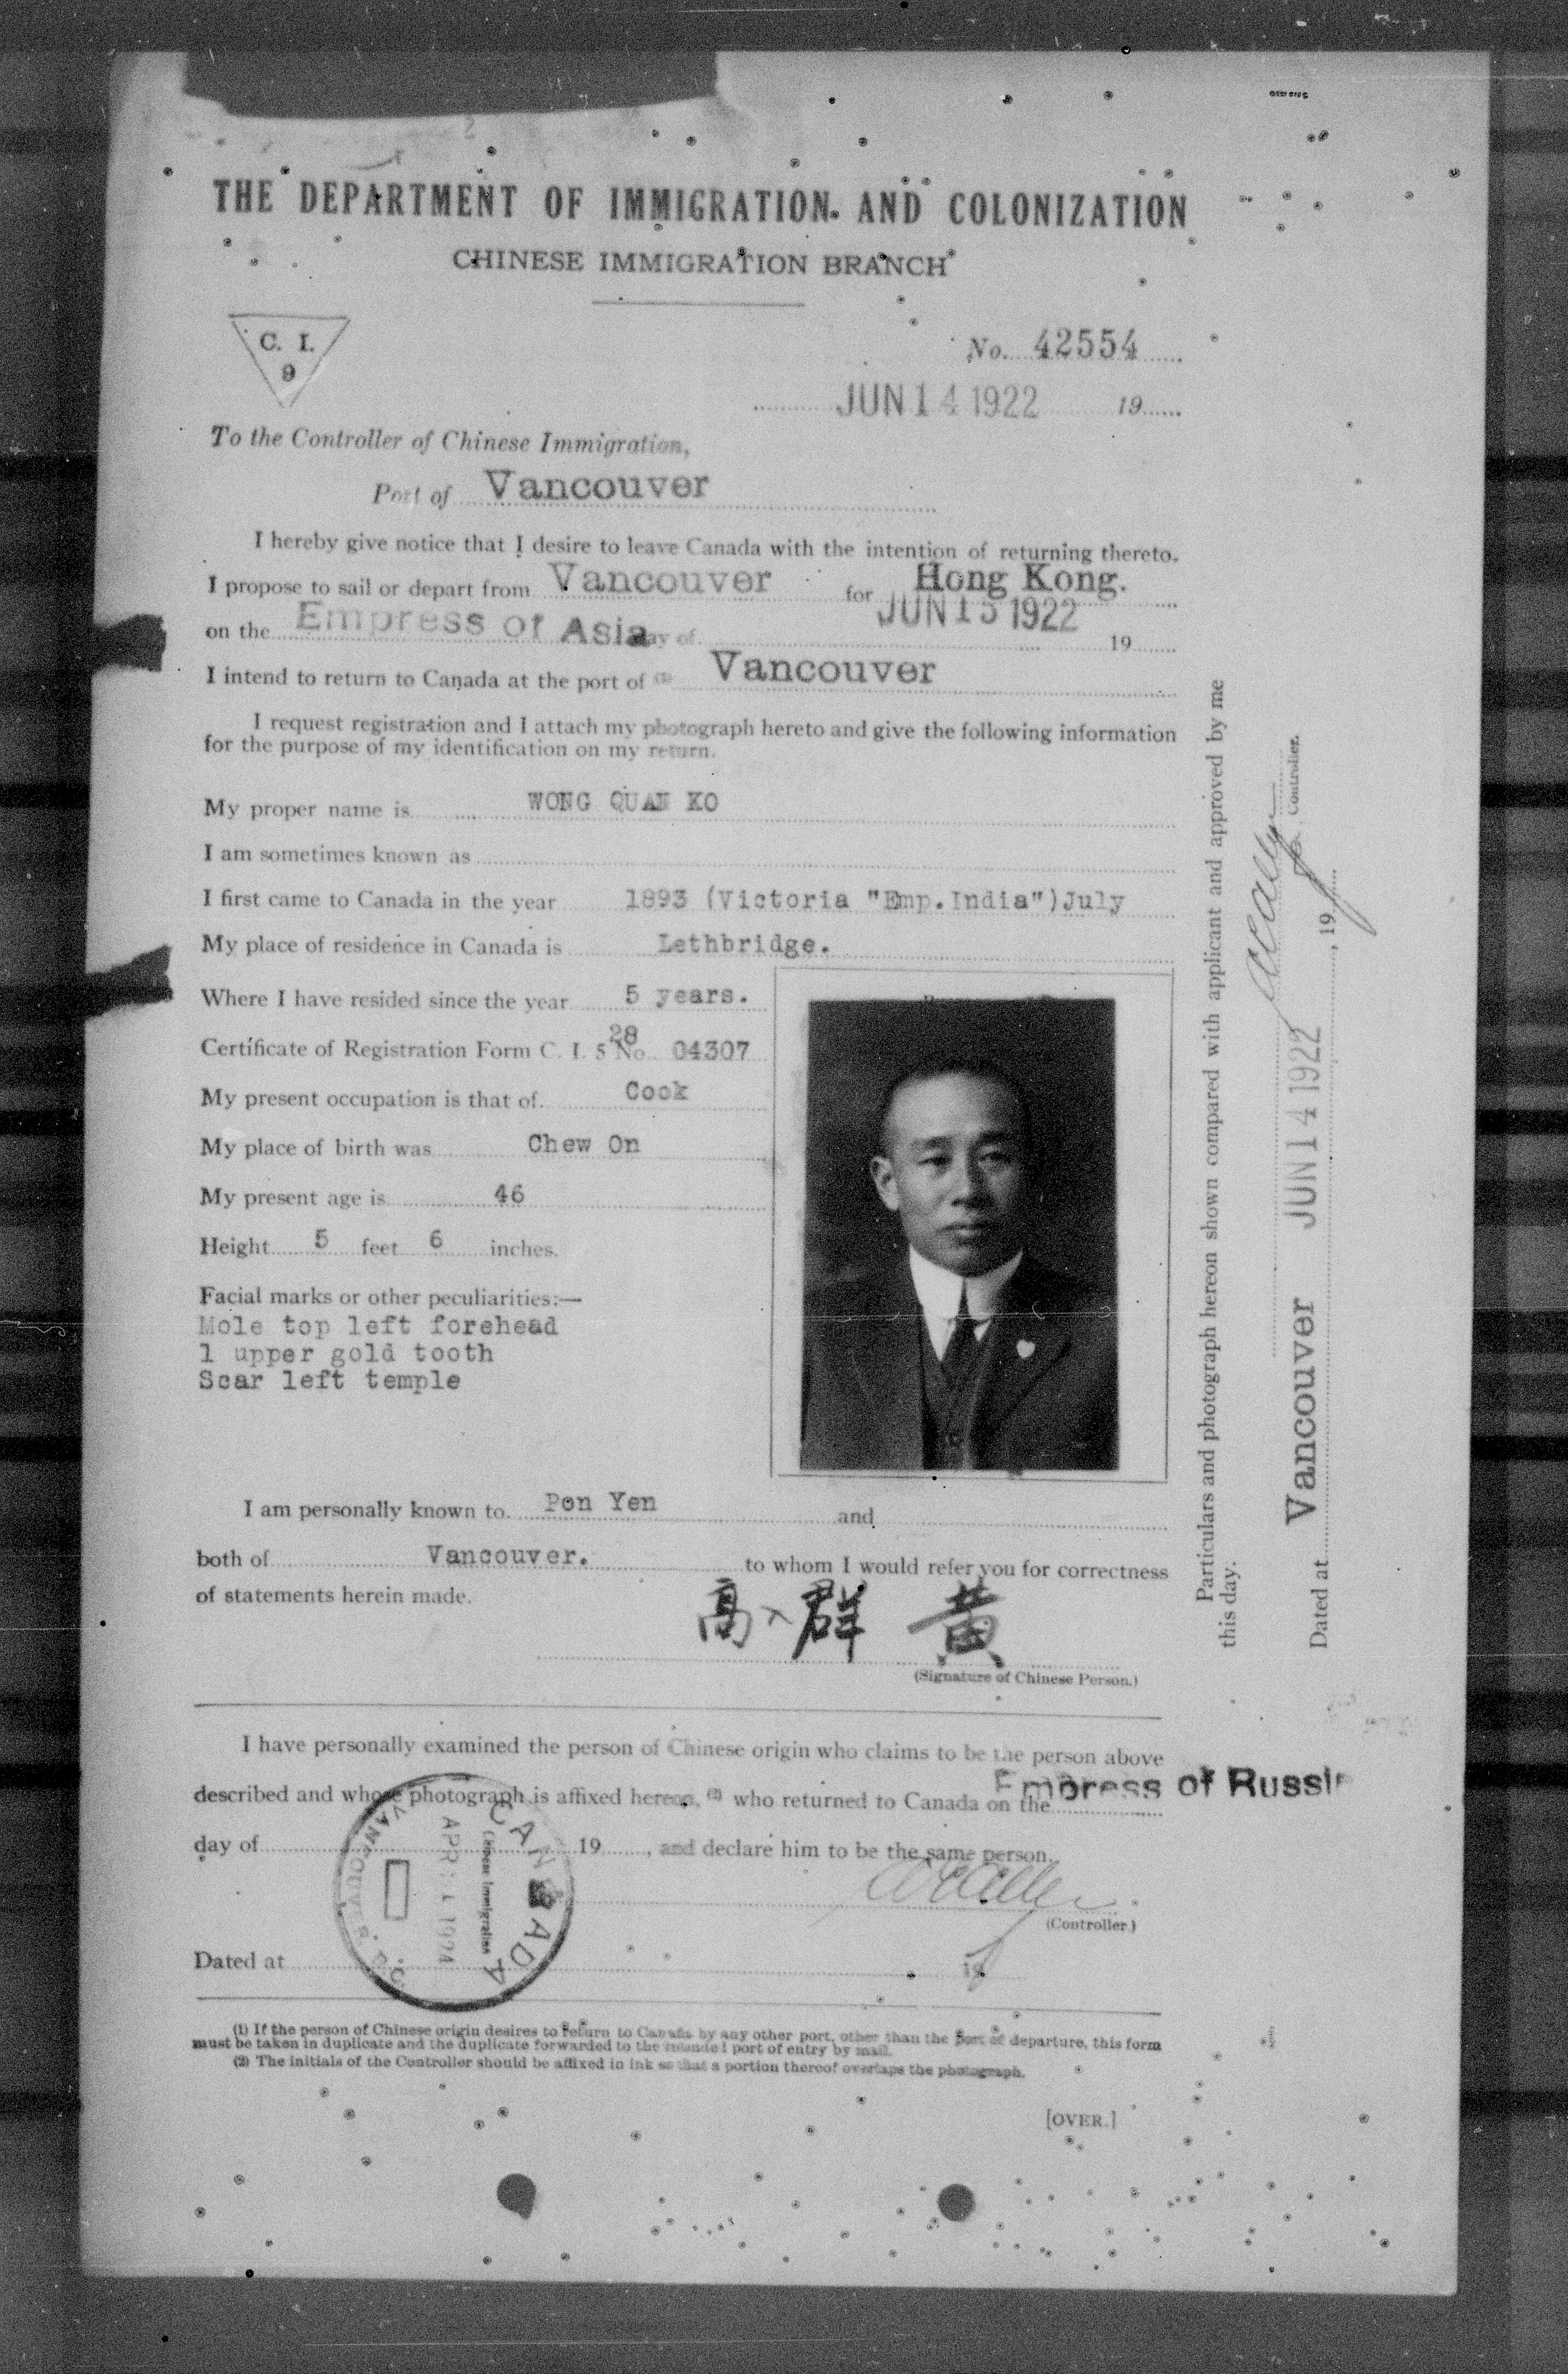 THE DEPARTMENT OF IMMIGRATION AND COLONIZATION
CHINESE IMMIGRATION BRANCH
C. I.
9
No. 42554
JUN 14 1922 19
To the Controller of Chinese Immigration,
Port of Vancouver
I hereby give notice that I desire to leave Canada with the intention of returning thereto.
I propose to sail or depart from Vancouver for Hong Kong.
on the Empress of Asia day of JUN 15 1922 19
I intend to return to Canada at the port of (1) Vancouver
I request registration and I attach my photograph hereto and give the following information
for the purpose of my identification on my return.
My proper name is WONG QUAN KO
I am sometimes known as
I first came to Canada in the year 1893 (Victoria "Emp.India")July
My place of residence in Canada is Lethbridge.
Where I have resided since the year 5 years.
28
Certificate of Registration Form C. I. 5 No. 04307
My present occupation is that of Cook
My place of birth was Chew On
My present age is 46
Height 5 feet 6 inches.
Facial marks or other peculiarities:—
Mole top left forehead
1 upper gold tooth
Scar left temple
I am personally known to Pon Yen and
both of Vancouver. to whom I would refer you for correctness
of statements herein made.
高 群 黄
(Signature of Chinese Person.)
I have personally examined the person of Chinese origin who claims to be the person above
Empress of Russia
described and whose photograph is affixed hereon, (2) who returned to Canada on the
day of 19 , and declare him to be the same person.
(Controller.)
Dated at 19
CANADA
Chinese Immigration
VANCOUVER, B.C.
(1) If the person of Chinese origin desires to return to Canada by any other port, other than the port of departure, this form
must be taken in duplicate and the duplicate forwarded to the intended port of entry by mail.
(2) The initials of the Controller should be affixed in ink so that a portion thereof overlaps the photograph.
[OVER.]
Particulars and photograph hereon shown compared with applicant and approved by me
this day.
Controller.
Dated at Vancouver JUN 14 1922 , 19